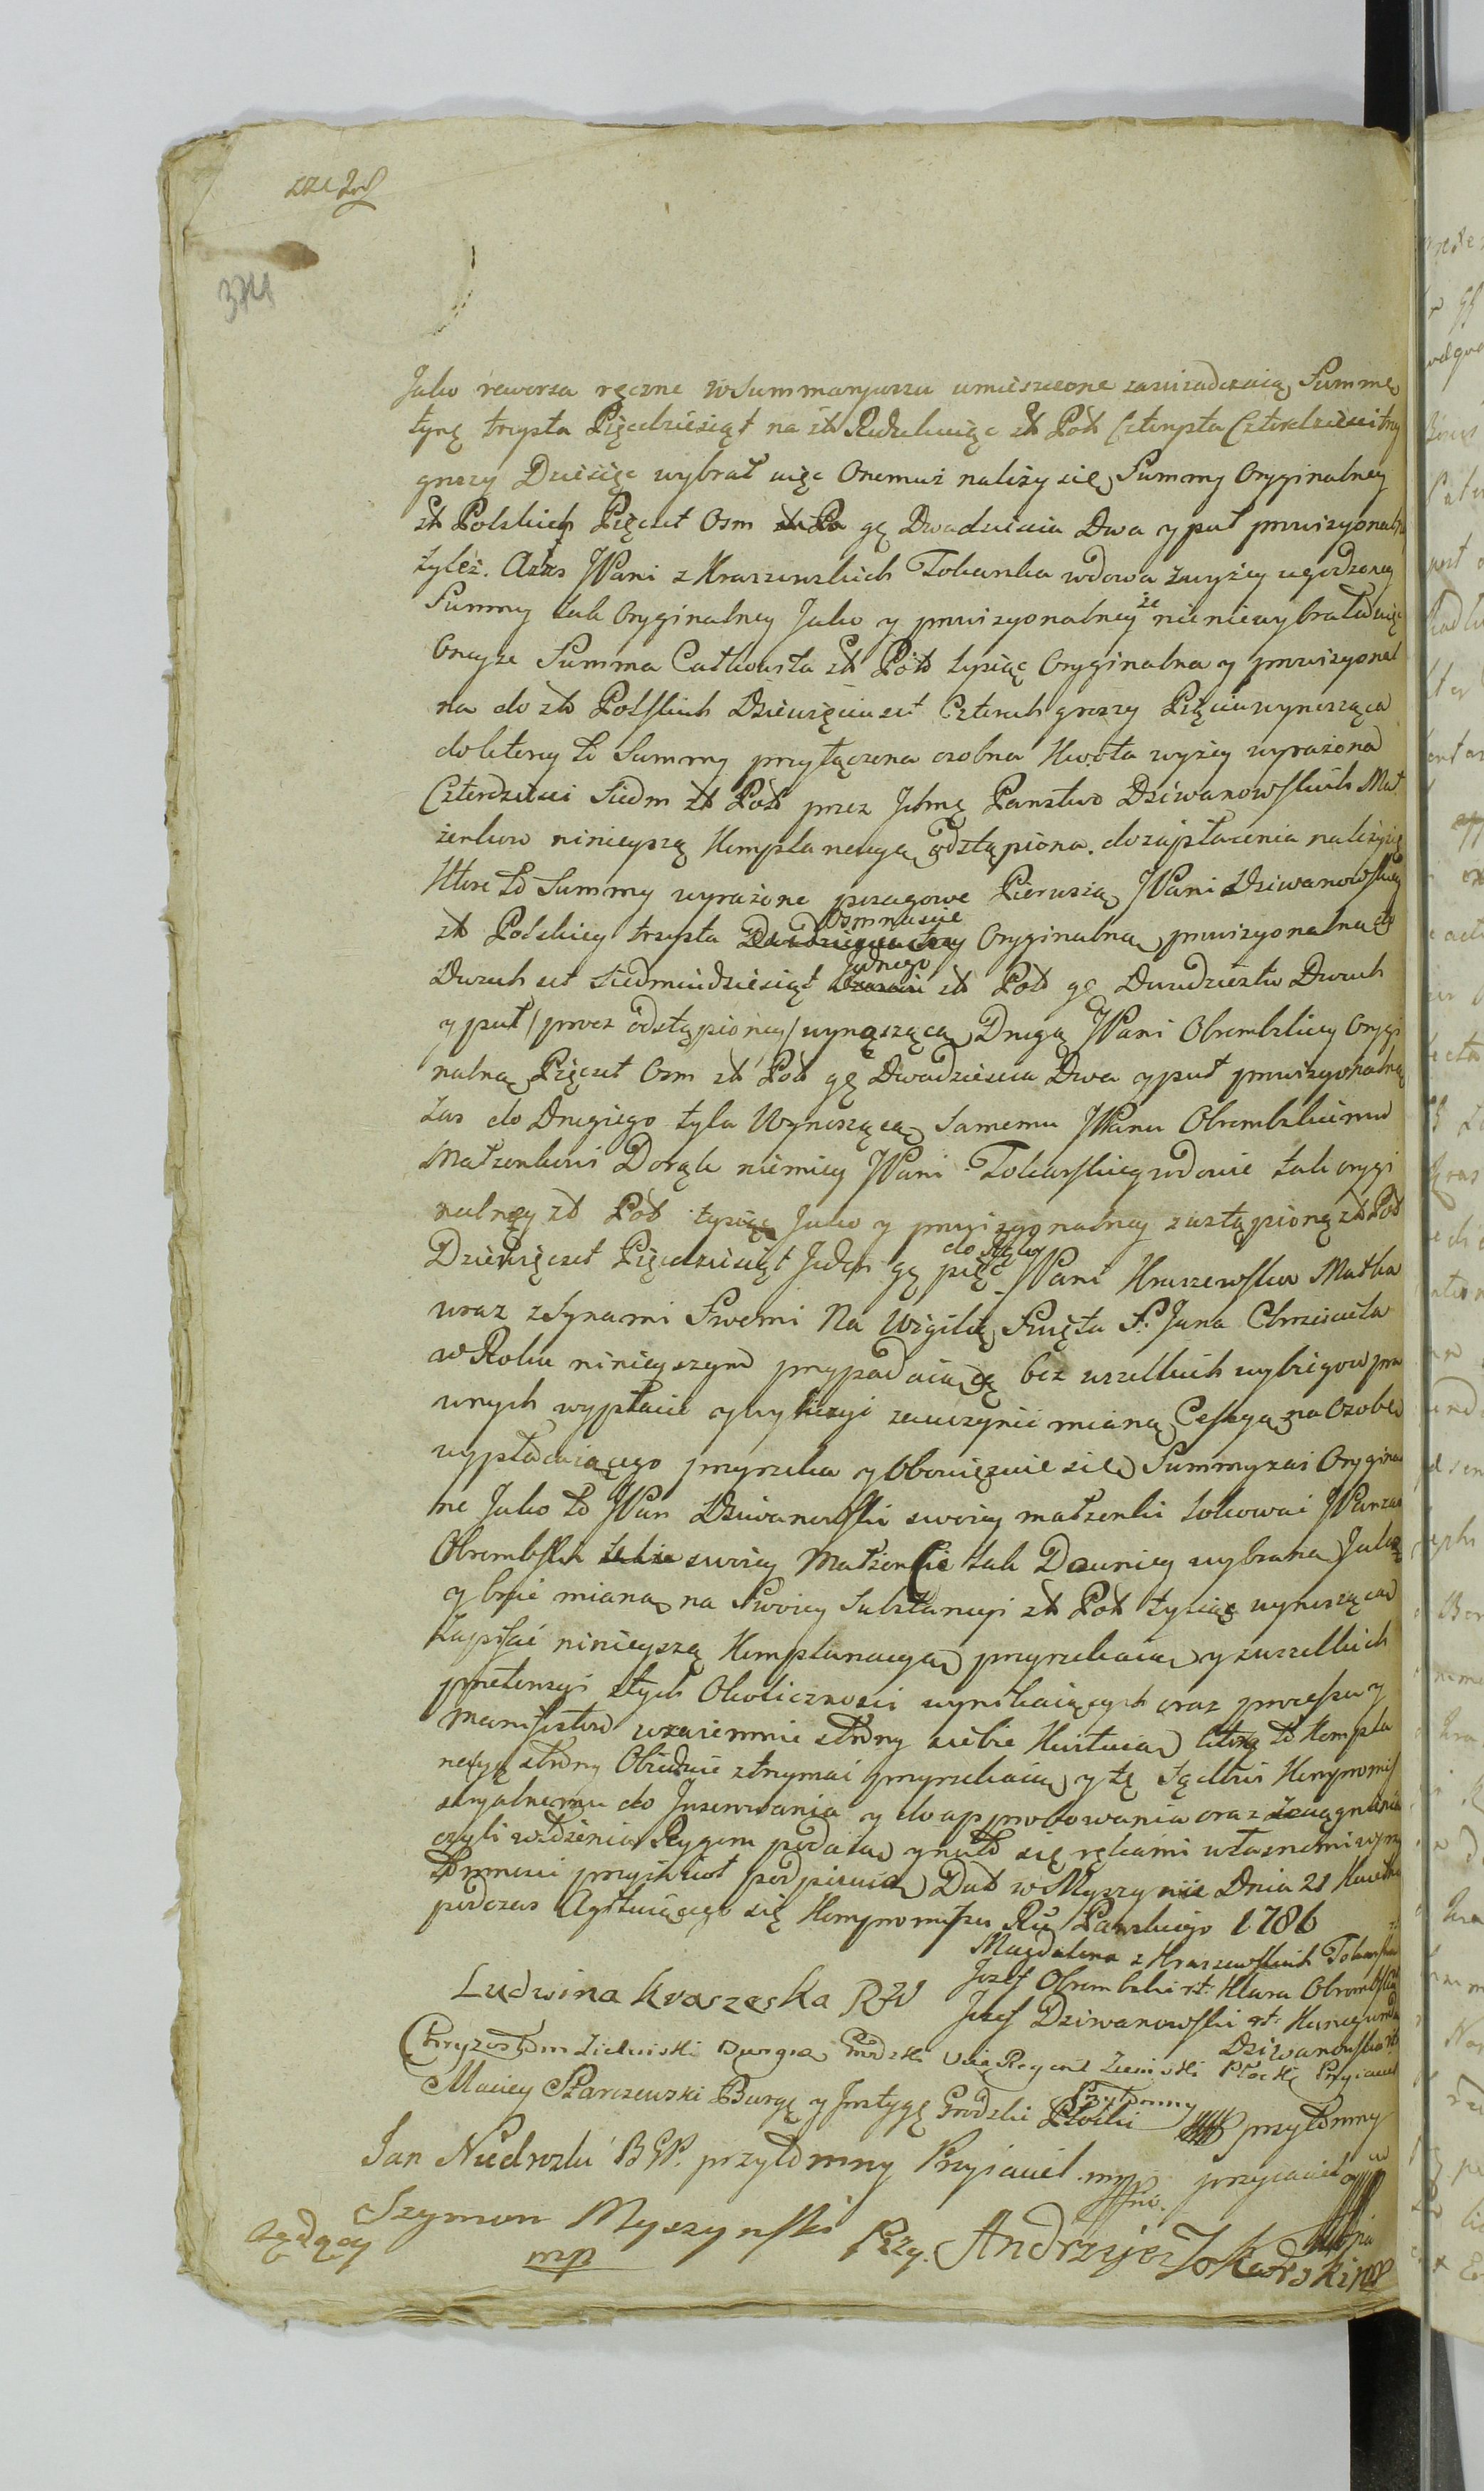 Jako rewersa ręczne w Summaryuszu umieszczone zaswiadczaią Summę
tynę trzysta Pięcdziesiąt na zł Redukuiąc zł Pol Czterysta Czterdziesci trzy
groszy Dziesięc wybrał więc Onemuż należy się Summy Oryginalney
zł Polskich Pięcset Osm gę Dwadziescia Dwa y puł prowizyonalney
tyleż. JPani z Kraszewskich Tokarska wdowa zwyżey ugodzoney
Summy tak Oryginalney Jako y prowizyonalney że nic niewybrała więc
Oneyze Summa Całkowita zł Pol tysiąc Oryginalna y prowizyonal
na do zł Polskich Dziewięciuset Czterech groszy Pięciu wynosząca
do ktorey to Summy przyłączona osobna Kwota wyżey wyrażona
Czterdziesci Siedm zł Pol przez Ichmę Panstwo Dziwanowskich Mał
żenkow ninieyszą Komplanacyą odstąpiona. do zapłacenia należy się
Ktore to Summy wyrażone posagowe Pierwszą JPani Dziwanowskiey
zł Polskiey trzysta Osmnascie Oryginalną prowizyonalną zł
Dwuch set Siedmiudziesiąt Jednego zł Pol gę Dwudziestu Dwuch
y puł /procz odstąpioney/ wynoszącą Drugą JPani Obrembskiey Orygi
nalną Pięcset Osm zł Pol gę Dwadziescia Dwa y puł prowizyonalną
zas do Drugiego tyla Wynoszącą Samemu JPanu Obrembskiemu
Małzonkowi Dorąk niemiey JPani Tokarskiey wdowie tak orygi
nalney zł Pol tysiąc Jako y prowizyonalney zastąpioną zł Pol
Dziewięcset Pięcdziesiąt Jeden gę pięc do Ręku JPani Kraszewska Matka
wraz z Synami Swemi Na Wigilią Swięta S: Jana Chrzciciela
w Roku ninieyszym przypadaiącą bez wszelkich wybiegow pra
wnych wypłacic y wyliczyc zauczynic mianą Cessyą na Osobę
wypłacaiącego przyrzeka y Obowięzuie się Summy zas Orygina
lne Jako to JPan Dziwanowski swoiey małzonki lokowac JPan zas
Obrembski swoiey Małzonki tak Dawniey wybraną Jako
y bydz mianą na Swoiey Substancyi zł Pol tysiąc wynoszącą
zapisac ninieyszą Komplanacyą przyrzekaią y z wszelkich
pretensyi z tych Okolicznosci wynikaiących oraz processu y
manifestow wzaiemnie strony siebie Kwituią ktorą to Kompla
nacyą strony Obiedwie strzymac przyrzekaią y tę Sądowi Kompromis
saryalnemu do Inserowania y do approbowania oraz
czyli włożenia Rygoru podaią y nato się rękami własnemi w przy
tomnosci przyiacioł podpisuią Dat w Myszynie Dnia 21 Kwietnia
podczas Agituiącego się Kompromissu Ru Panskiego 1786
Magdalena z Kraszewskich Tokarska
Ludwina kraszeska Jozef Obrembski Klara Obrembska
Jozef Dziwanowski Kunegunda
Dziwanowska
Chryzostom Zielinski Burgra Grodzki Regent Ziemski Płocki Przyiaciel
Przytomny
Maciey Starczewski Burgę y Instygę Grodzki Płocki przytomny
Jan Niedrozki BGP. przytomny Przyiaciel mp przyiaciel
Szymon Myszynski Przy. Andrzej Tokarski mp
mp